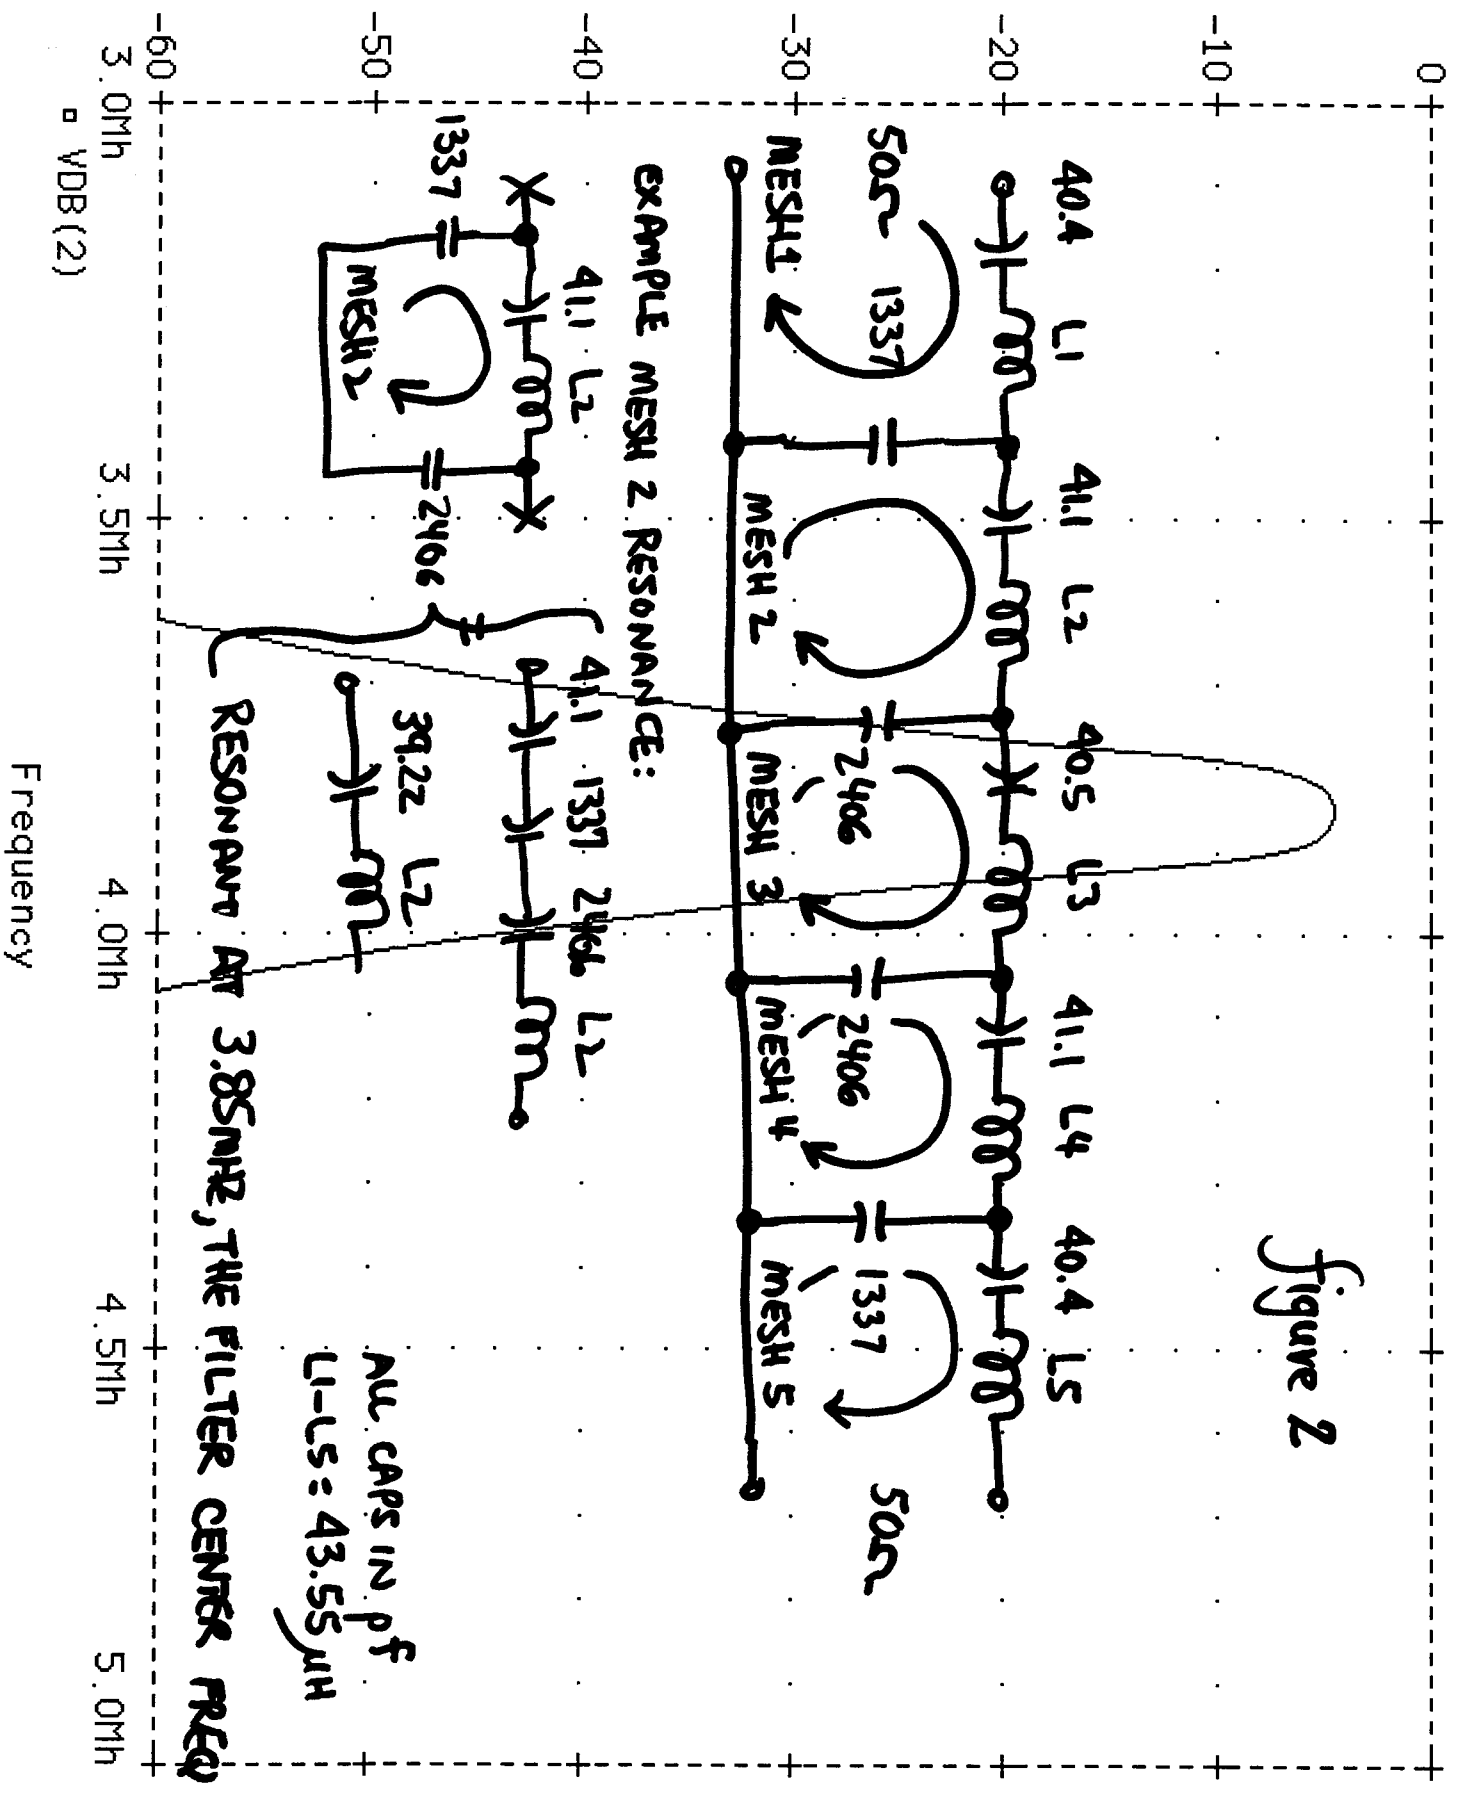 figure 2
0
-10
-20
-30
-40
-50
-60
40.4 L1 41.1 L2 40.5 L3 41.1 L4 40.4 L5
50Ω 1337 2406 2406 1337 50Ω
MESH 1 MESH 2 MESH 3 MESH 4 MESH 5
EXAMPLE MESH 2 RESONANCE:
41.1 L2
1337 MESH 2 2406
41.1 1337 2406 L2
39.22 L2
ALL CAPS IN pf
L1-L5 = 43.55 µH
RESONANT AT 3.85MHZ, THE FILTER CENTER FREQ
3.0Mh 3.5Mh 4.0Mh 4.5Mh 5.0Mh
▫ VDB(2)
Frequency